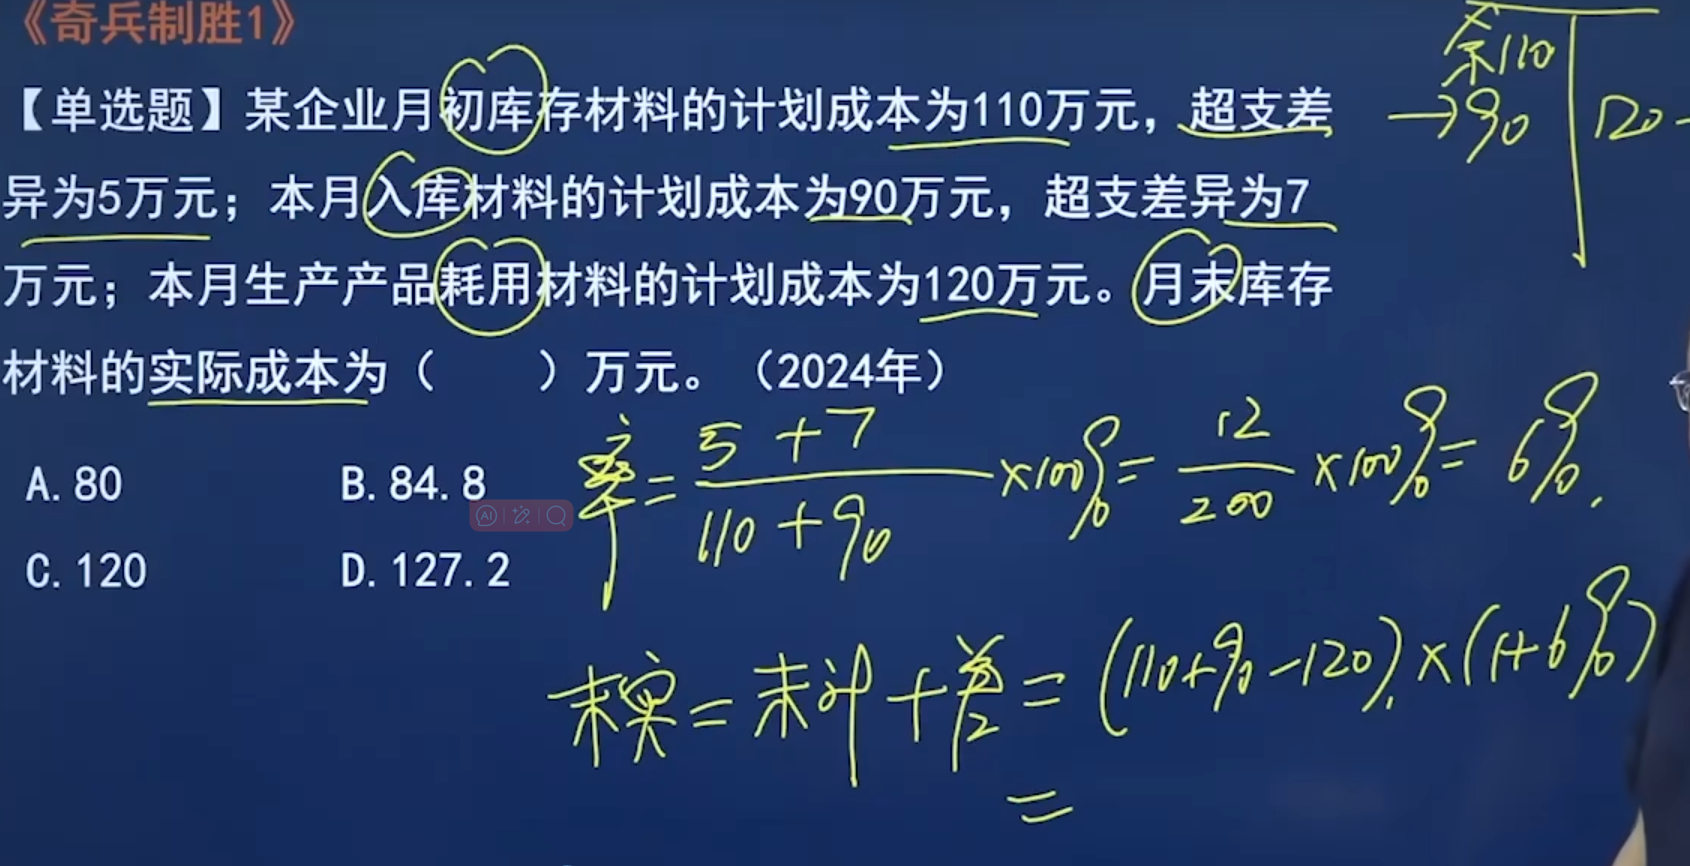 《奇兵制胜1》
【单选题】某企业月初库存材料的计划成本为110万元，超支差
异为5万元；本月入库材料的计划成本为90万元，超支差异为7
万元；本月生产产品耗用材料的计划成本为120万元。月末库存
材料的实际成本为（　　）万元。（2024年）
A. 80　　B. 84.8
C. 120　　D. 127.2
余110
→90　120
率 = (5+7)/(110+90) ×100% = 12/200 ×100% = 6%.
末实 = 末计 + 差2 = (110+90-120)×(1+6%)
=